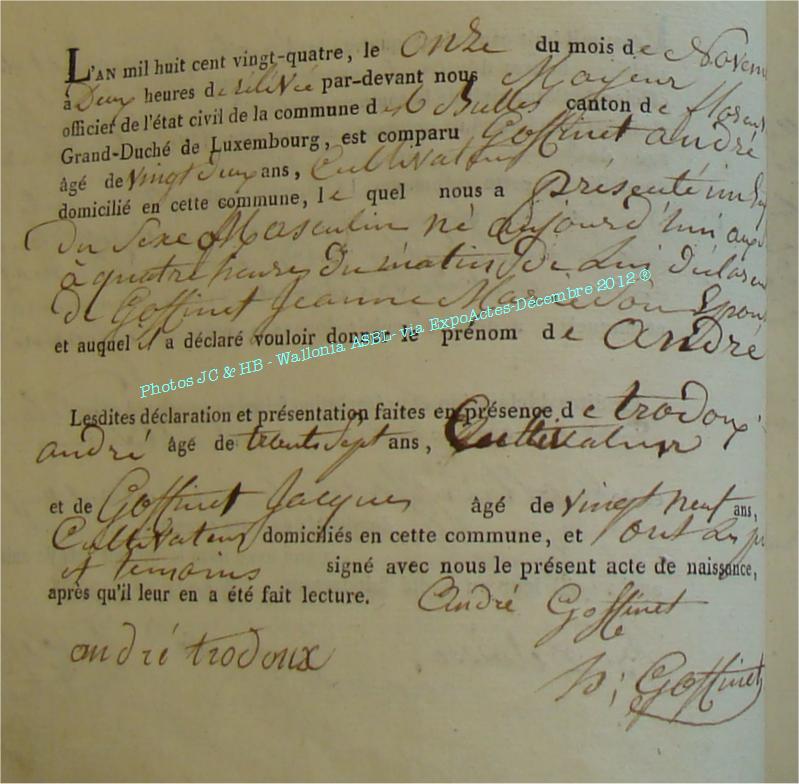 L'AN mil huit cent vingt-quatre, le onze du mois de Novem
à Deux heures de relevée par-devant nous Mayeur
officier de l'état civil de la commune des Bulles canton de floren
Grand-Duché de Luxembourg, est comparu Goffinet andré
âgé de vingt deux ans, Cultivateur
domicilié en cette commune, le quel nous a présenté un
du Sexe Masculin né aujourd'hui
à quatre heures du matin de Lui déclaran
de Goffinet Jeanne Marie Son Epous
et auquel il a déclaré vouloir donner le prénom de andré
Photos JC & HB - Wallonia ASBL - via ExpoActes-Décembre 2012 ®
Lesdites déclaration et présentation faites en présence de trodoux
andré âgé de trente Sept ans, Cultivateur
et de Goffinet Jacques âgé de vingt neuf ans,
Cultivateur domiciliés en cette commune, et ont Les p
et temoins signé avec nous le présent acte de naissance,
après qu'il leur en a été fait lecture. andré Goffinet
andré trodoux
Goffinet